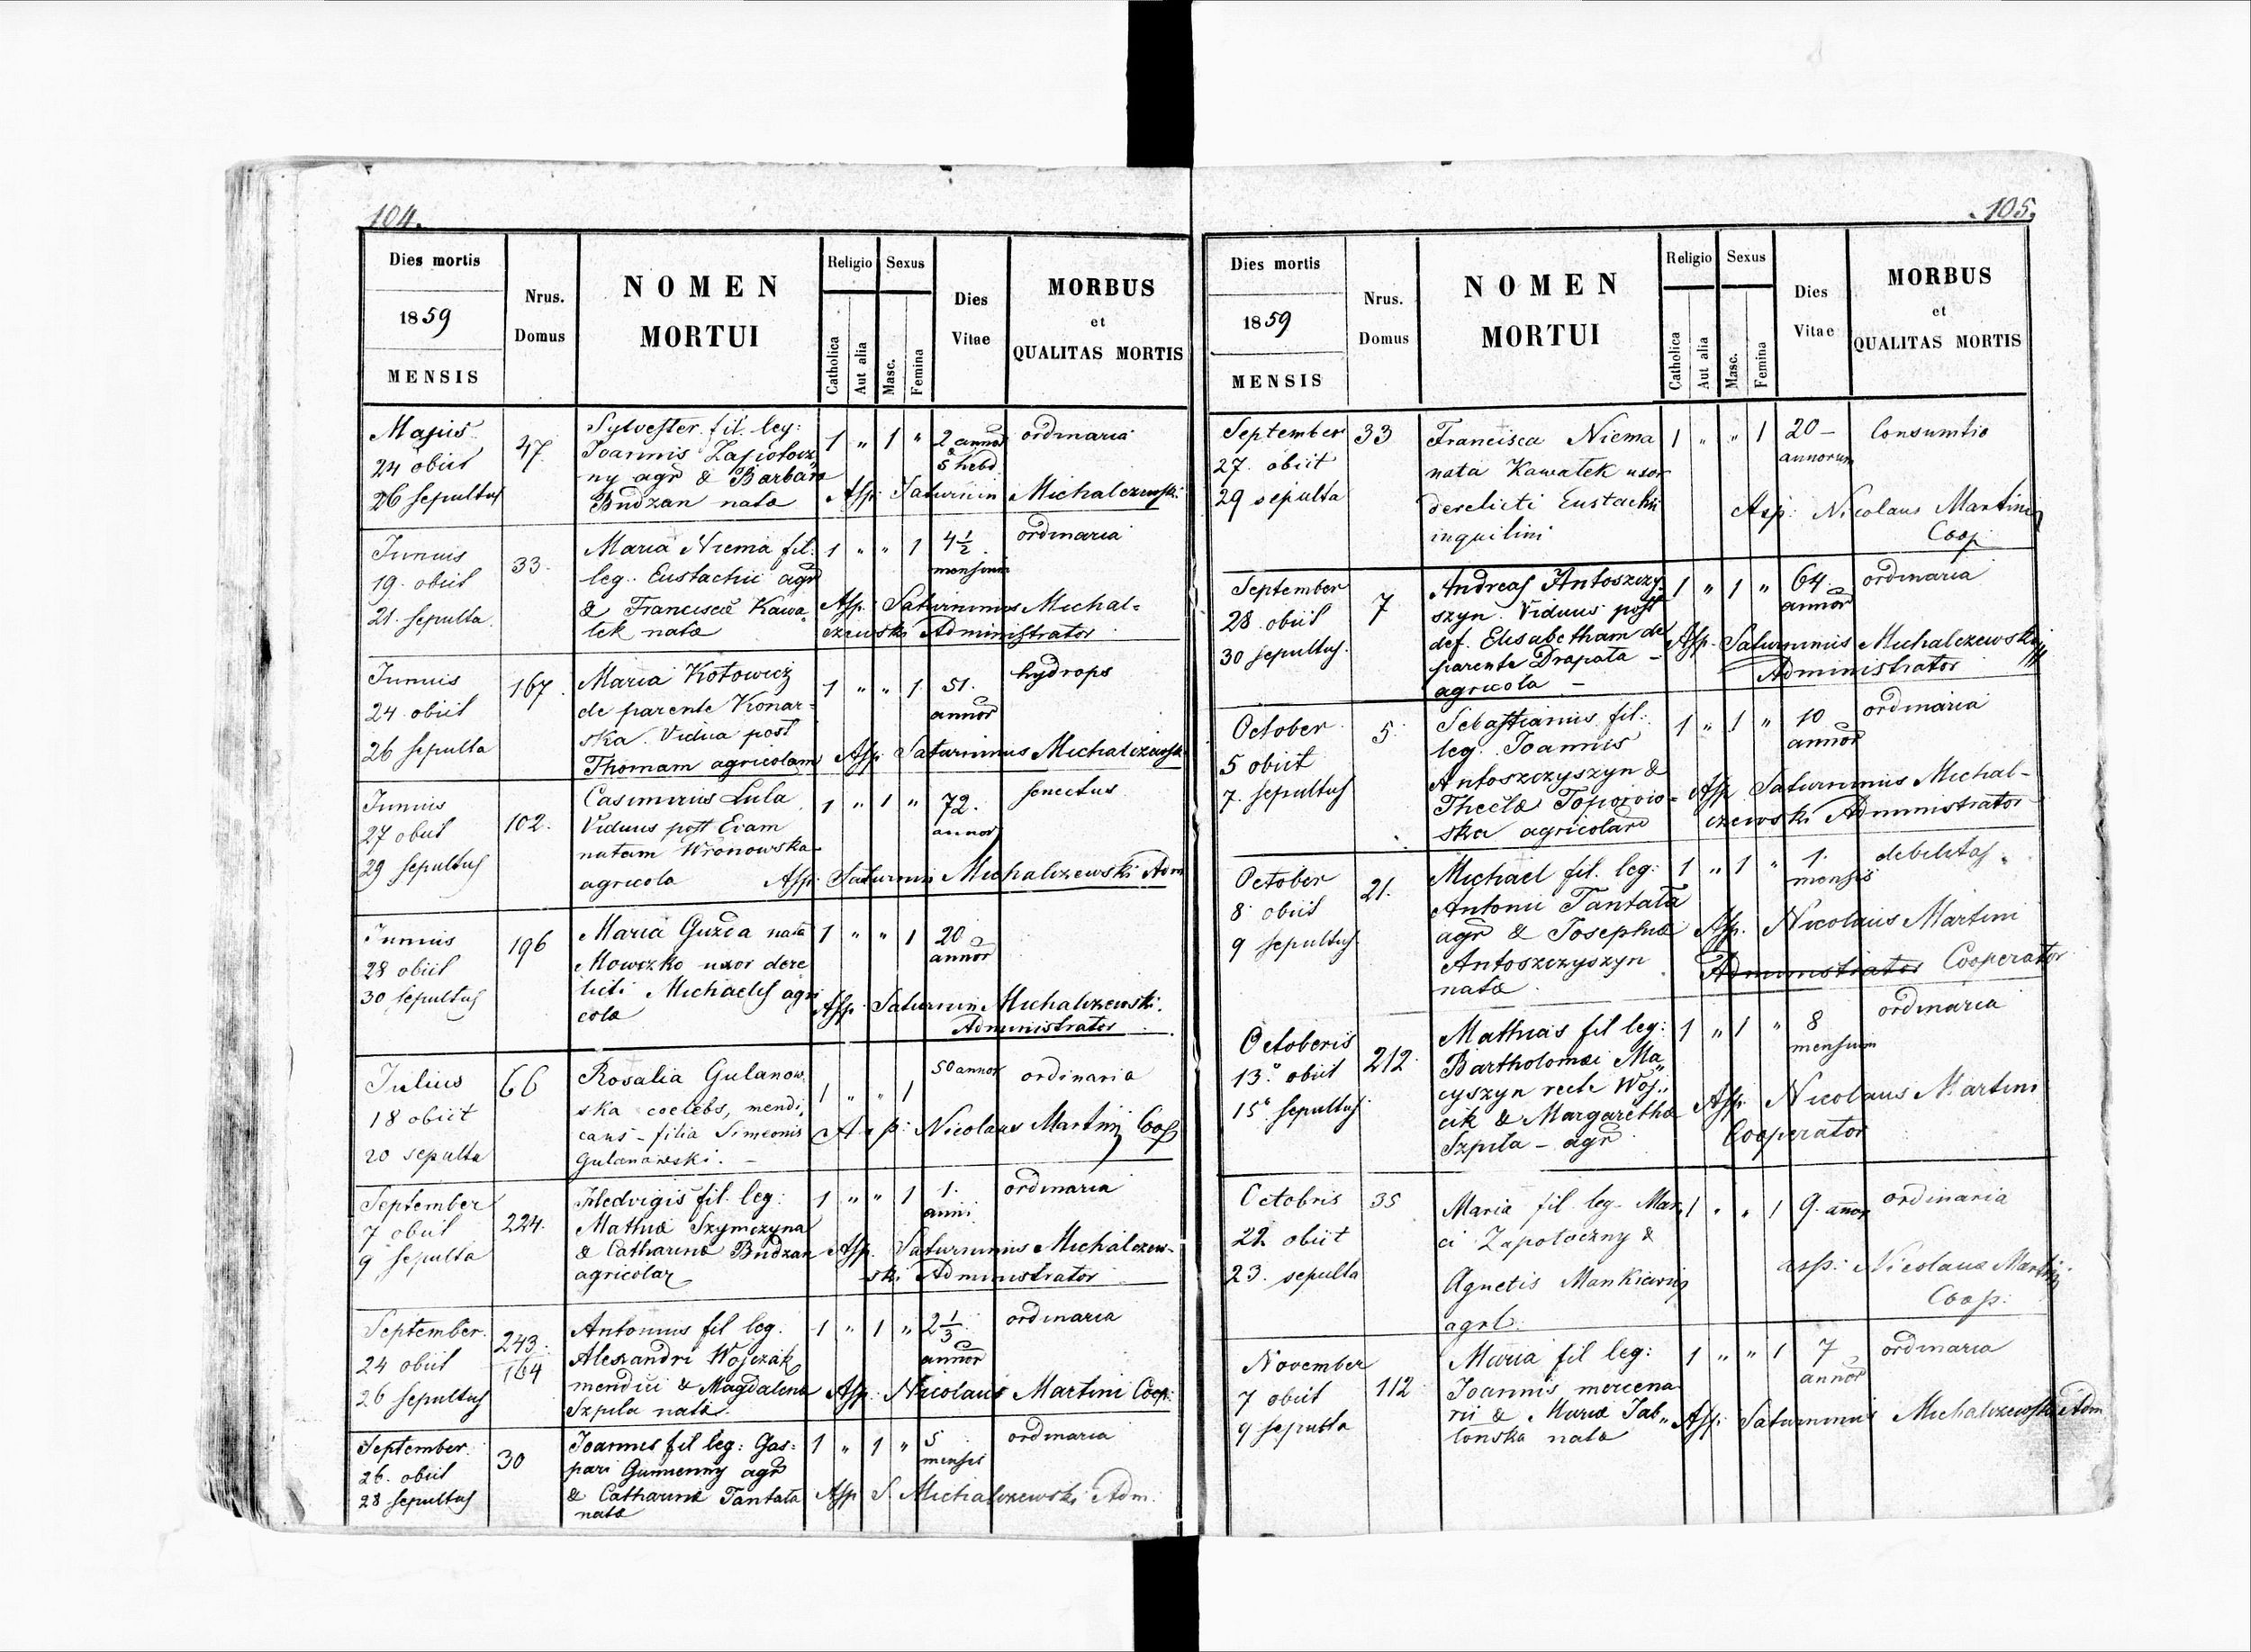 104.
Dies mortis
1859
MENSIS
Nrus.
Domus
NOMEN
MORTUI
Religio
Catholica
Aut alia
Sexus
Masc.
Femina
Dies
Vitae
MORBUS
et
QUALITAS MORTIS
Majus
24 obiit
26 sepultus
47
Sylvester fil. leg:
Joannis Zapotocz,
ny agr & Barbara
Budzan nata
1 " 1 "
2 annor
&
5 hebd.
ordinaria
Asp. Saturnin Michalczewski
Junius
19. obiit
21. sepulta.
33.
Maria Niema fil.
leg. Eustachii agr
& Francisca Kawa,
lek nata
1 " " 1
4 1/2
mensium
ordinaria
Asp. Saturninus Michal=
czewski Administrator
Junius
24 obiit
26 sepulta
167.
Maria Kotowicz
de parente Konar-
ska. Vidua post
Thomam agricolam
1 " " 1
51.
annor
hydrops
Asp. Saturninus Michalczewski
Junius
27 obiit
29 sepultus
102.
Casimirus Lula
Viduus post Evam
natam Wronowska
agricola
1 " 1 "
72.
annor
senectus
Asp. Saturnin Michalczewski Adm
Junius
28 obiit
30 sepultus
196
Maria Guzda nata
Mowczko uxor dere
licti Michaelis agri
cola
1 " " 1
20
annor
Asp. Saturnin Michalczewski.
Administrator
Julius
18 obiit
20 sepulta
66
Rosalia Gulanow,
ska coelebs, mendi,
cans - filia Simeonis
Gulanowski. -
1 " " 1
50 annor
ordinaria
Asp: Nicolaus Martinj Coop
September
7 obiit
9 sepulta
224.
Hedvigis fil. leg:
Mathiæ Szymczyna
& Catharina Budzan
agricolar
1 " " 1
1.
anni
ordinaria
Asp. Saturninus Michalczew-
ski Administrator
September.
24 obiit
26 sepultus
243.
164
Antonius fil leg.
Alexandri Wojczak
mendici & Magdalena
Szpila nata.
1 " 1 "
2 1/3
annor
ordinaria
Asp. Nicolaus Martini Coop:
September.
26. obiit
28 sepultus
30
Joannes fil leg: Gas-
pari Gumenny agr
& Catharina Tantata
nata
1 " 1 "
5
mensis
ordinaria
Asp S. Michalczewski Adm.
105.
Dies mortis
1859
MENSIS
Nrus.
Domus
NOMEN
MORTUI
Religio
Catholica
Aut alia
Sexus
Masc.
Femina
Dies
Vitae
MORBUS
et
QUALITAS MORTIS
September
27. obiit
29 sepulta
33
Francisca Niema
nata Kawatek uxor
derelicti Eustachii
inquilini
1 " " 1
20 -
annorum
Consumtio
Asp: Nicolaus Martinij
Coop
September
28 obiit
30 sepultus.
7
Andreas Antoszczy,
szyn. Viduus post
def. Elisabetham de
parente Drapata -
agricola -
1 " 1 "
64.
annor
ordinaria
Asp. Saturninus Michalczewski
Administrator
October
5 obiit
7. sepultus
5.
Sebastianus fil:
leg. Joannis
Antoszczyszyn &
Theclæ Toporow-
ska agricolar
1 " 1 "
10
annor
ordinaria
Asp. Saturninus Michal-
czewski Administrator
October
8 obiit
9 sepultus
21.
Michael fil. leg:
Antonii Tantata
agr & Josepha
Antoszczyszyn
nata
1 " 1 "
1.
mensis
debilitas
Asp. Nicolaus Martini
Administrator Cooperator
Octoberis
13° obiit
15° sepultus
212.
Mathias fil leg:
Bartholomæi Ma,
cyszyn recte Woj,
cik & Margaretha
Szpila - agr
1 " 1 "
8
mensium
ordinaria
Asp. Nicolaus Martini
Cooperator
Octobris
22 obiit
23. sepulta
35
Maria fil leg. Mar
ci Zapotoczny &
Agnetis Mankiewicz
agrl.
1 " " 1
9. annor
ordinaria
asp: Nicolaus Martinij
Coop:
November
7 obiit
9 sepulta
112
Maria fil leg:
Joannis mercena
rii & Maria Jab,,
lonska nata
1 " " 1
7
annor
ordinaria
Asp: Saturninus Michalczewski Adm